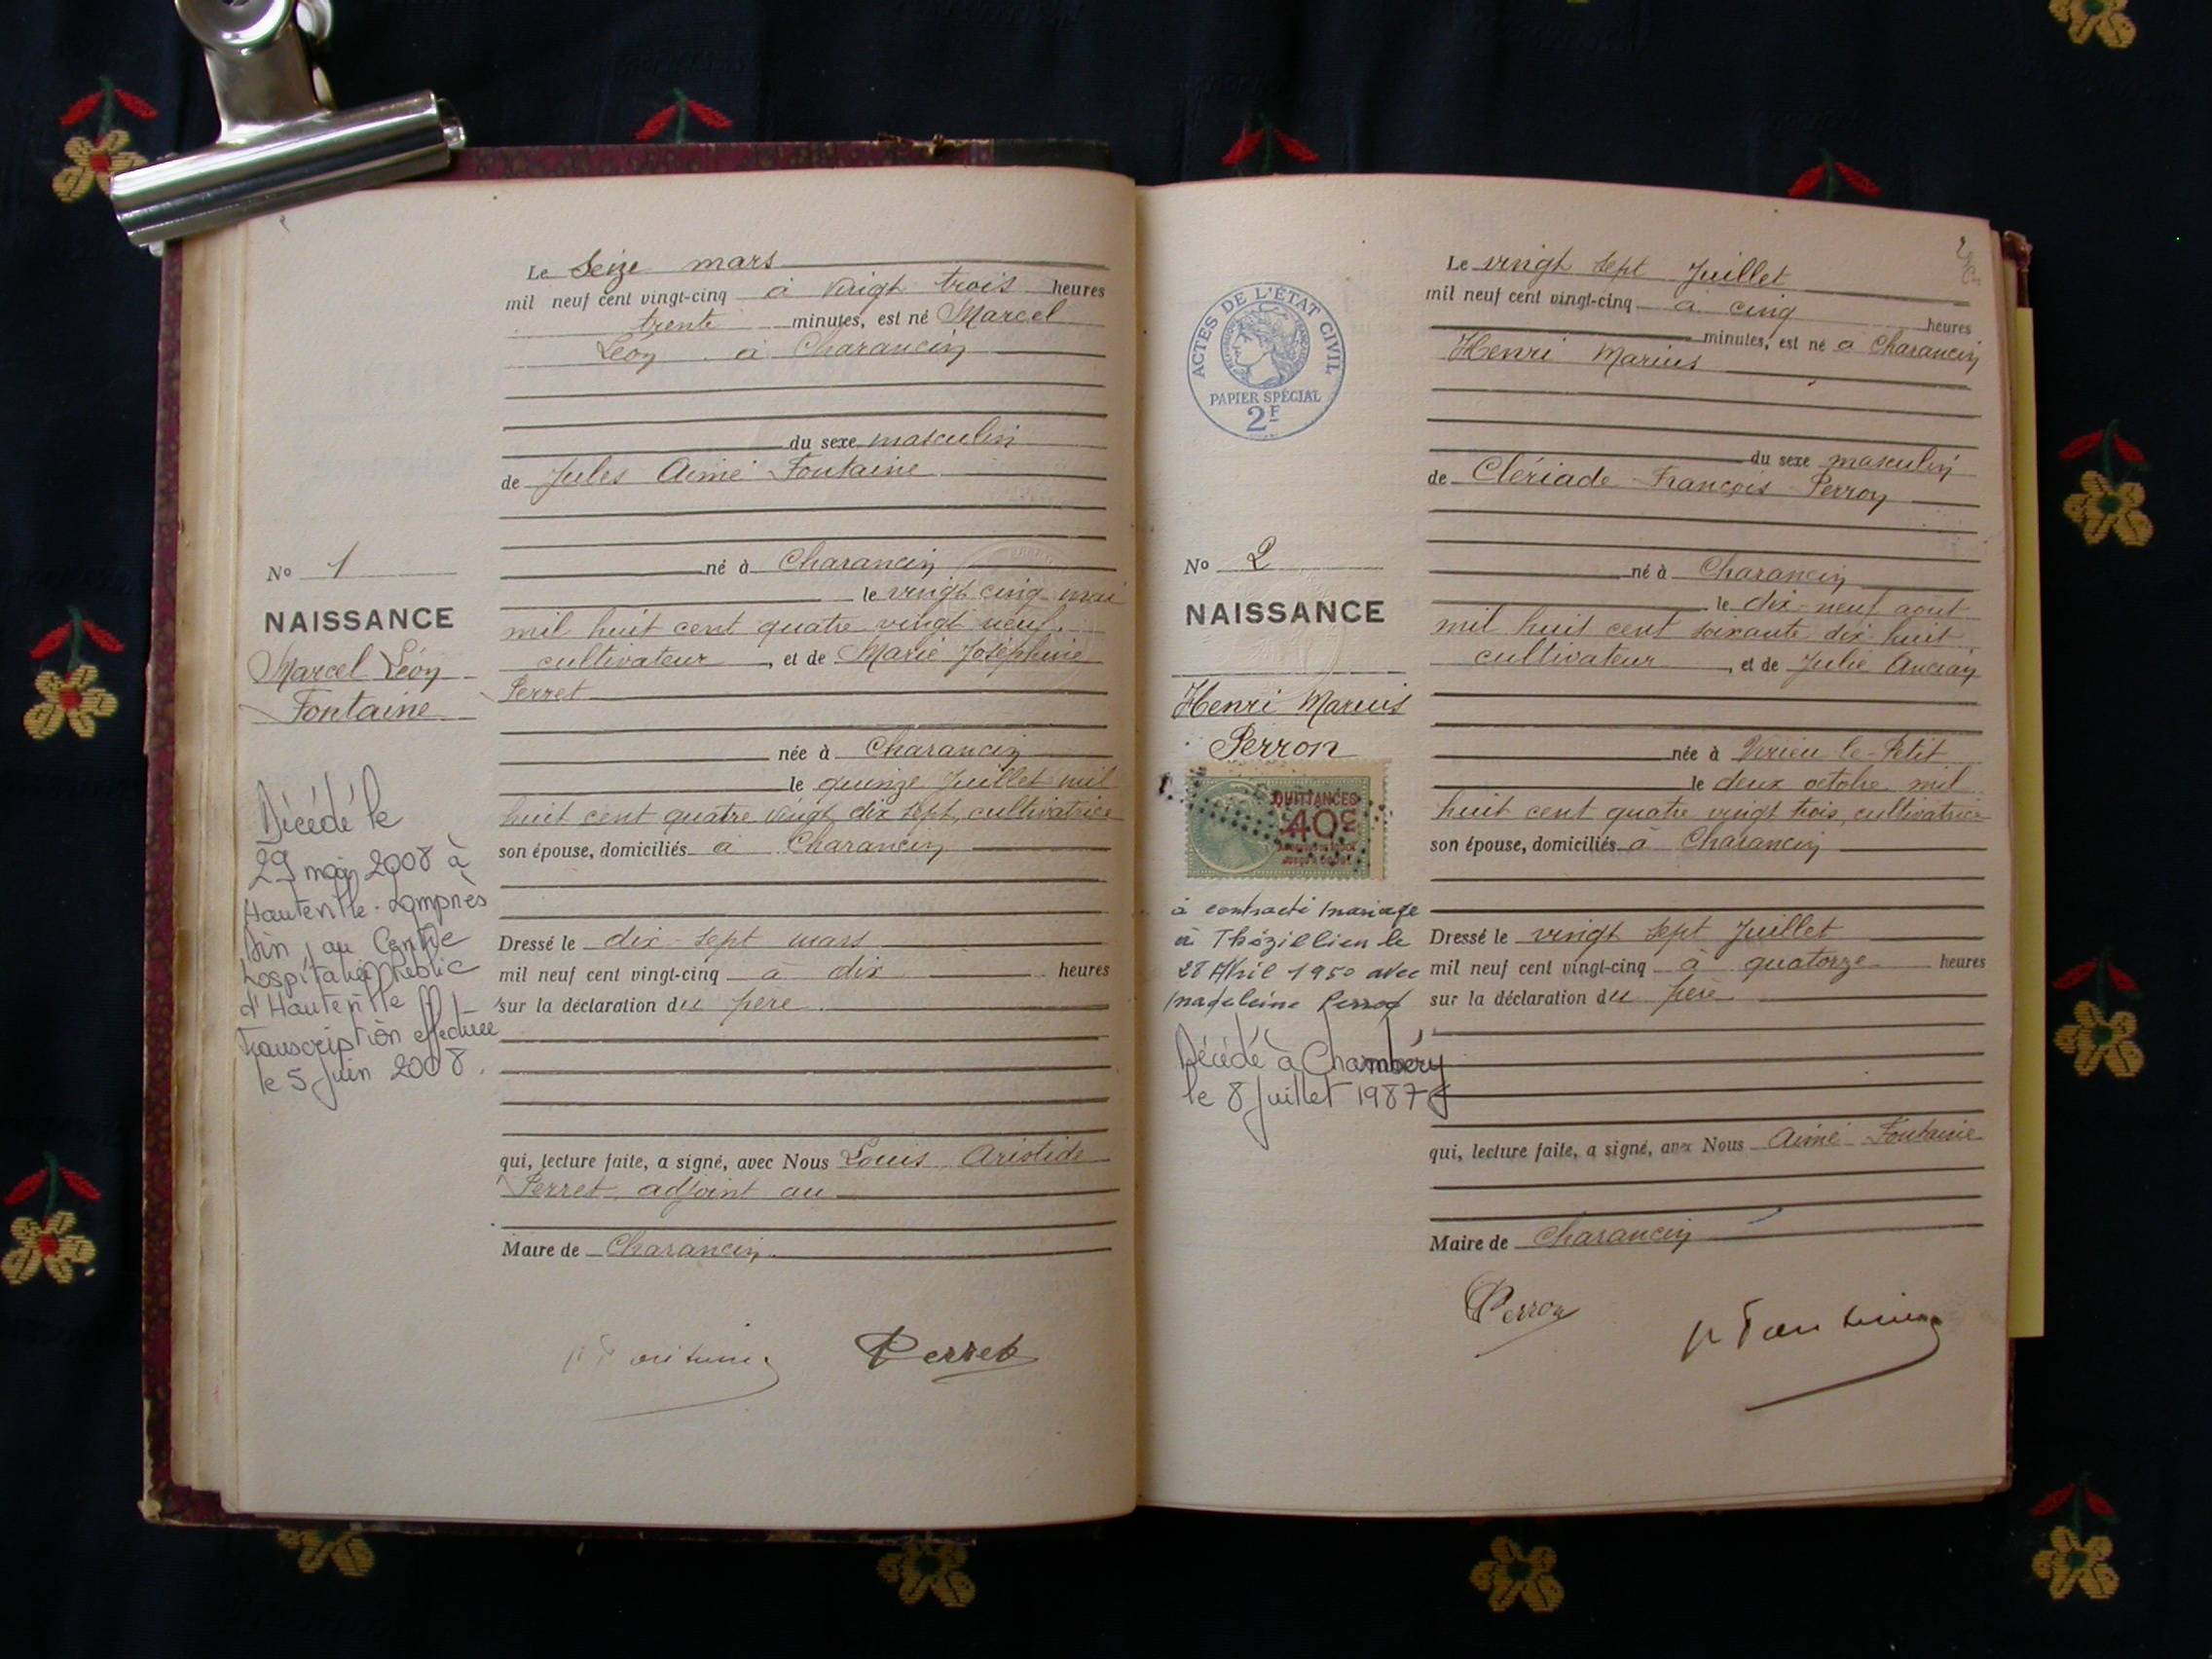 Le Seize mars
mil neuf cent vingt-cinq à vingt trois heures
trente minutes, est né Marcel
Léon à Charancin
du sexe masculin
de Jules Aimé Fontaine
né à Charancin
le vingt cinq mai
mil huit cent quatre vingt neuf
cultivateur, et de Marie Joséphine
Perret
née à Charancin
le quinze Juillet mil
huit cent quatre vingt dix sept, cultivatrice
son épouse, domiciliés à Charancin
Dressé le dix-sept mars
mil neuf cent vingt-cinq à dix heures
sur la déclaration du père
qui, lecture faite, a signé, avec Nous Louis Aristide
Perret adjoint au
Maire de Charancin
Perret
No 1
NAISSANCE
Marcel Léon
Fontaine
Décédé le
29 mai 2008 à
Hauteville-Lompnes
Ain, au Centre
hospitalier Public
d'Hauteville
Transcription effectuée
le 5 Juin 2008.
ACTES DE L'ÉTAT CIVIL
PAPIER SPÉCIAL
2F
No 2
NAISSANCE
Henri Marius
Perron
QUITTANCES
40c
à contracté mariage
à Thézillieu le
28 Avril 1950 avec
Madeleine
Décédé à Chambéry
le 8 Juillet 1987
Le vingt sept Juillet
mil neuf cent vingt-cinq à cinq heures
minutes, est né à Charancin
Henri Marius
du sexe masculin
de Clériade François Perron
né à Charancin
le dix-neuf aout
mil huit cent soixante dix huit
cultivateur, et de Julie Ancian
née à Virieu le-Petit
le deux octobre mil
huit cent quatre vingt trois, cultivatrice
son épouse, domiciliés à Charancin
Dressé le vingt sept Juillet
mil neuf cent vingt-cinq à quatorze heures
sur la déclaration du père
qui, lecture faite, a signé, avec Nous Aimé Fontaine
Maire de Charancin
Perron